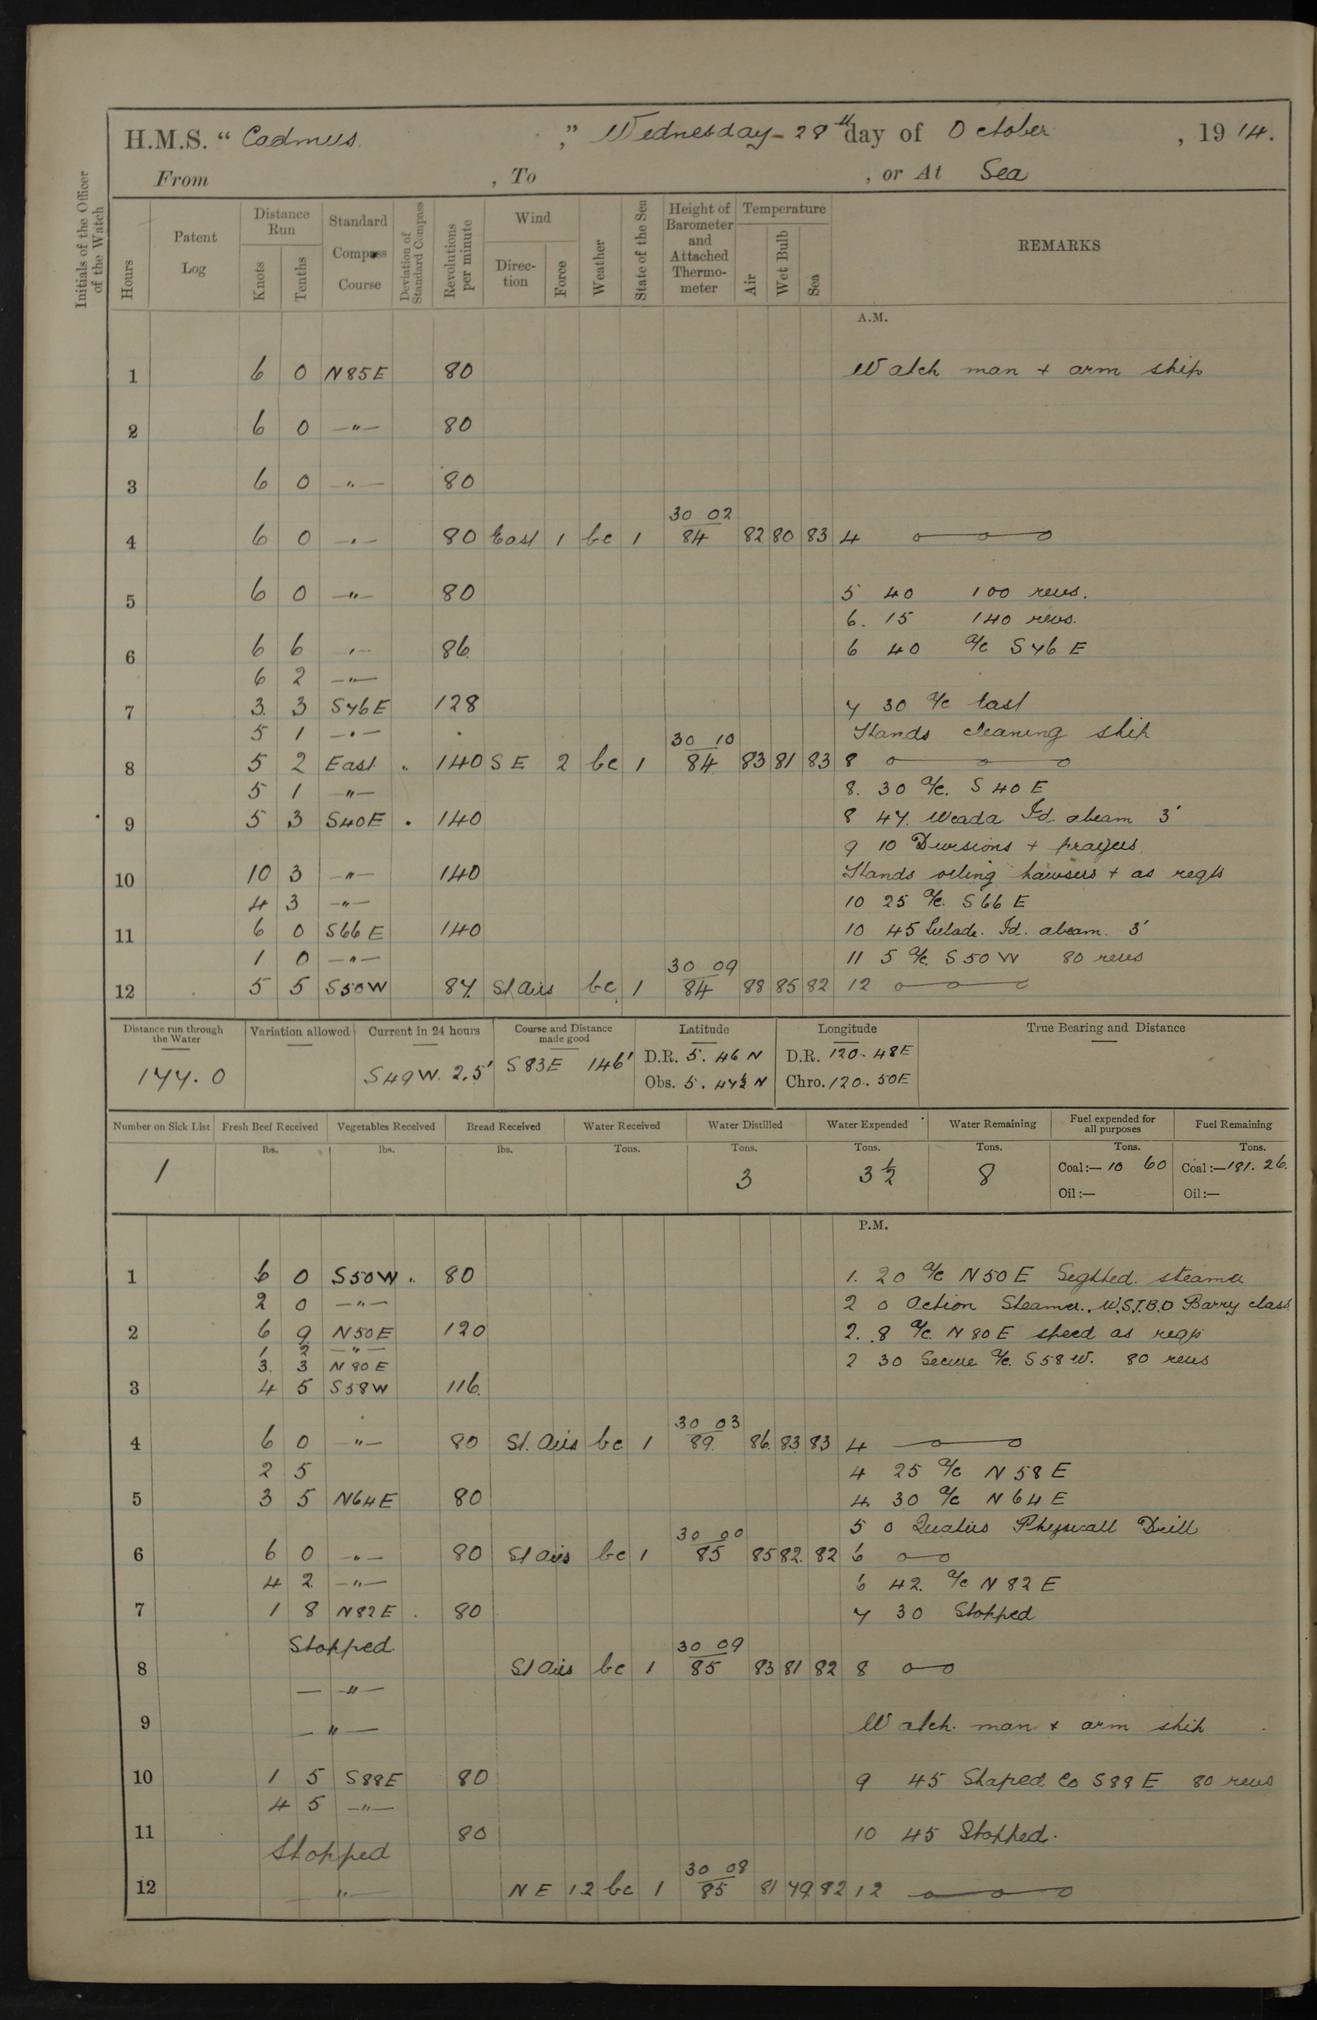 H.M.S. “ Cadmus ,” Wednesday - 28th day of October , 19 14.
From , To , or At Sea
Initials of the Officer of the Watch
Hours Patent Log Distance Run Knots Tenths Standard Compass Course Deviation of Standard Compass Revolutions per minute Wind Direction Force Weather State of the Sea Height of Barometer and Attached Thermometer Temperature Air Wet Bulb Sea REMARKS
A.M.
1 6 0 N85E 80 Watch man + arm ship
2 6 0 —"— 80
3 6 0 —"— 80
30 02
4 6 0 —"— 80 East 1 bc 1 84 82 80 83 4
5 6 0 —"— 80 5 40 100 revs.
6. 15 140 revs.
6 6 6 —"— 86 6 40 a/c S 76 E
6 2 —"—
7 3 3 S76E 128 7 30 a/c East
5 1 —"— Hands cleaning ship
30 10
8 5 2 East 140 SE 2 bc 1 84 83 81 83 8
5 1 —"— 8. 30 a/c. S 40 E
9 5 3 S40E 140 8 47. Weada Id. abeam 3'
9 10 Divisions + prayers
10 10 3 —"— 140 Hands oiling hawsers + as reqts
4 3 —"— 10 25 a/c. S 66 E
11 6 0 S66E 140 10 45 Id. abeam. 3'
1 0 —"— 11 5 a/c. S 50 W 80 revs
30 09
12 5 5 S50W 87. St airs bc 1 84 88 85 82 12
Distance run through the Water Variation allowed Current in 24 hours Course and Distance made good Latitude Longitude True Bearing and Distance
177.0 S49W. 2.5' S83E 146' D.R. 5. 46 N D.R. 120. 48E
Obs. 5. 47½ N Chro. 120. 50E
Number on Sick List Fresh Beef Received Vegetables Received Bread Received Water Received Water Distilled Water Expended Water Remaining Fuel expended for all purposes Fuel Remaining
lbs. lbs. lbs. Tons. Tons. Tons. Tons. Tons. Tons.
1 3 3½ 8 Coal:— 10 60 Coal:— 181. 26.
Oil:— Oil:—
P.M.
1 6 0 S50W 80 1. 20 a/c N50E Sighted. steamer
2 0 —"— 2 0 Action Steamer. Barry class
2 6 9 N50E 120 2. 8 a/c. N 80 E speed as reqts
1 2 —"—
3. 3 N80E 2 30 Secure a/c. S 58 W. 80 revs
3 4 5 S58W 116.
30 03
4 6 0 —"— 80 St. airs bc 1 89. 86. 83 83 4
2 5 4 25 a/c N 58 E
5 3 5 N64E 80 4. 30 a/c N 64 E
5 0 Quarters Physicall Drill
30 00
6 6 0 —"— 80 St airs bc 1 85 85 82. 82 6
4 2 —"— 6 42. a/c N 82 E
7 1 8 N82E 80 7 30 Stopped
Stopped
30 09
8 St airs bc 1 85 83 81 82 8
— —"—
9 —"— Watch. man + arm ship
10 1 5 S88E 80 9 45 Shaped Co S 88 E 80 revs
4 5 —"—
11 80 10 45 Stopped.
Stopped
30 08
12 " NE 1.2 bc 1 85 81 79. 82 12